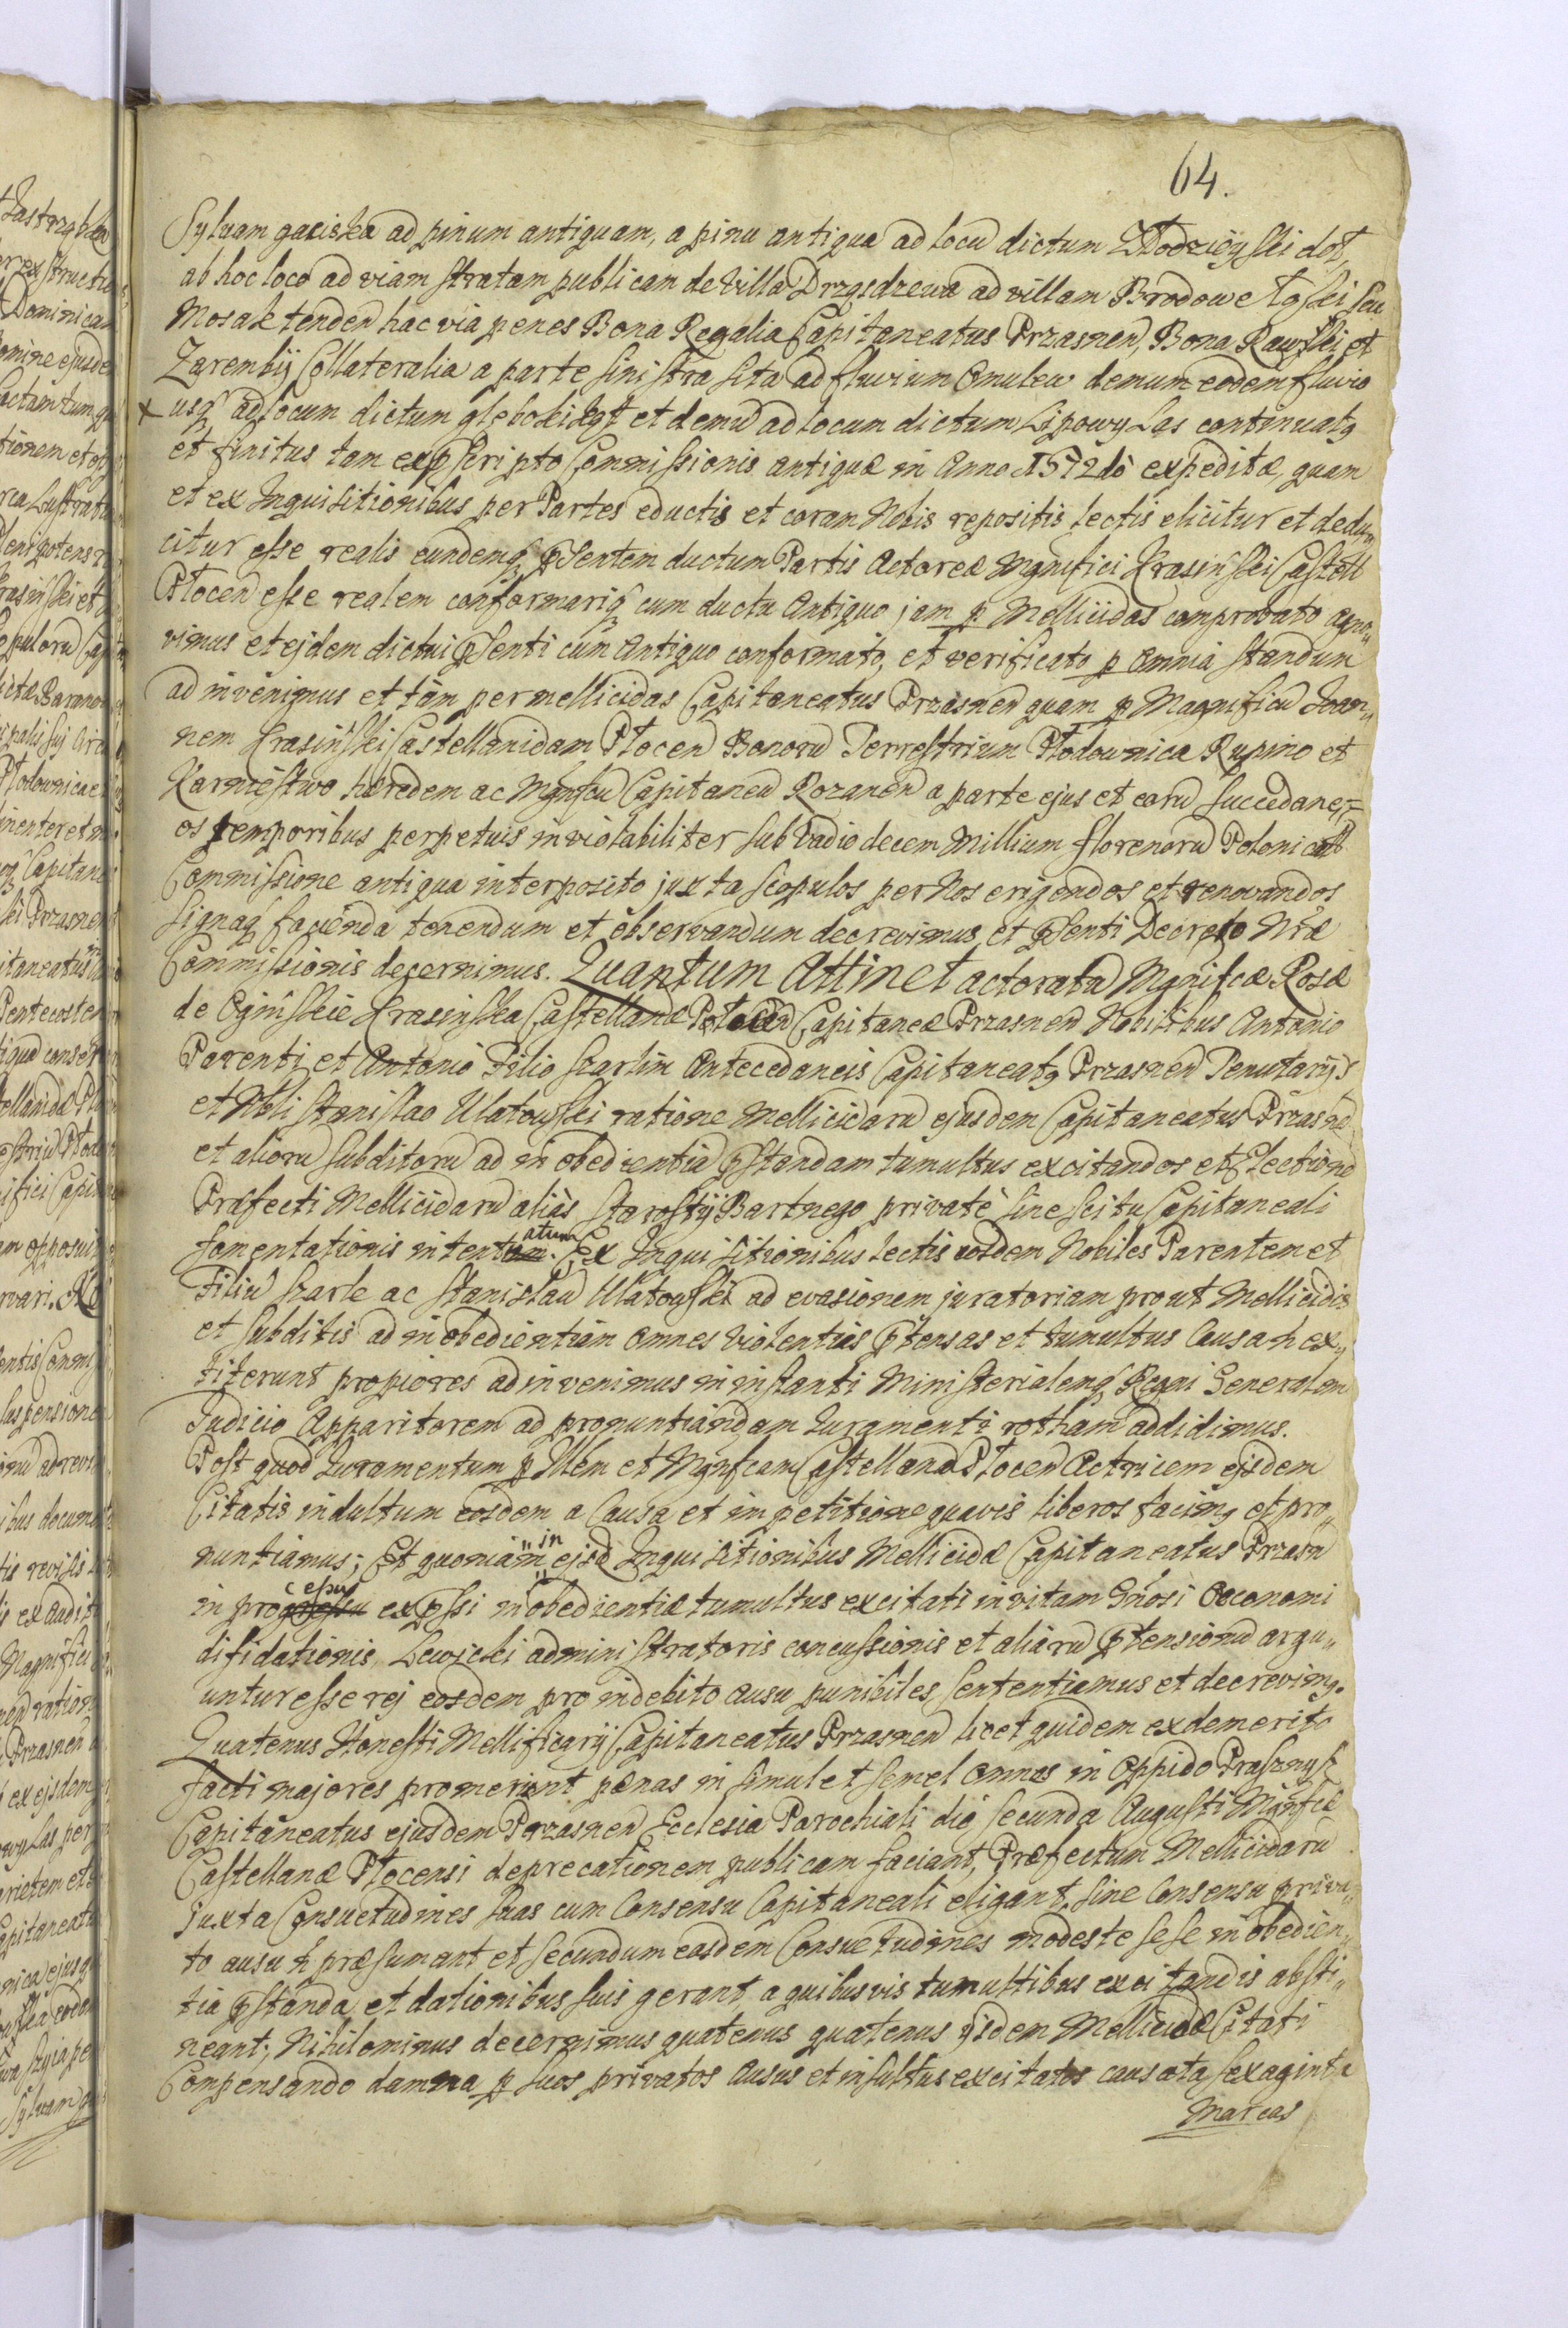 64.
Sylvam gaciska ad pinum antiquam, a pinu antiqua ad locū dictum Złodzieyski dół,
ab hoc loco ad viam stratam publicam de Villa Drzązdzewa ad villam Brodowe Łąski seu
Mosak tendeñ hac via penes Bona Regalia Capitaneatus Przasneñ, Bona Rawski et
Zarembÿ Collateralia a parte sinistra sita ad fluvium Omulew demum eodem fluvio
x usq ad locum dictum głęboki kąt et demū ad locum dictum Lipowy Las continuatq
et finitus tam ex pscripto Commissionis antiquæ in Anno 1572dò expeditæ, quam
et ex Inquisitionibus per Partes eductis et coram Nobis repositis lectis elicitur et dedu„
citur esse realis eundemq pſentem ductum Partis Actoreæ Mgnifici Krasiński Castell
Płoceñ esse realem conformariq cum ductu Antiquo jam p Mellicidas comprobato agno„
vimus et ejdem dictui pſenti cum Antiquo conformato, et verificato p omnia standum
ad invenimus et tàm per mellicidas Capitaneatus Przasneñ quam p Magnificū Joan„
nem Krasiński Castellanidam Płoceñ Bonorū Terrestrium Płodownica Rupino et
Karniestwo hæredem ac Mgnfcū Capitaneū Rozaneñ a parte ejus et earū succedane„
os temporibus perpetuis inviolabiliter sub Vadio decem Millium florenorū Polonical
Commissione antiqua interposito juxta scopulos per Nos erigendos et renovandos
signaq facienda tenendum et observandum decrevimus, et pſenti Decreto Nræ
Commissionis decernimus. Quantum Attinet actoratū Mgnifcæ Rosæ
de Ogińskie Krasińska Castellanæ Płoceñ Capitaneæ Przasneñ Nobilibus Antonio
Parenti et Antonio Filio Szarlin Antecedaneis Capitaneatq Przasneñ Tenutarÿs
et Nbli Stanislao Ulatowski ratione Mellicidarū ejusdem Capitaneatus Przasne
et aliorū subditorū ad in obedientiā pſtandam tumultus excitandos et Electionē
Præfecti Mellicidarū aliàs Starostÿ Bartnego privatè sine scitu Capitaneali
fomentationis intentatum. Ex Inquisitionibus lectis eosdem Nobiles Parentem et
Filiū Szarle ac Stanislaū Ulatowski ad evasionem juratoriam prout Mellicidis
et subditis ad in obedientiam omnes violentias ptensas et tumultus Causa ñ ex„
titerunt propiores adinvenimus in instanti Ministerialemq Regni Generalem
Judicio Apparitorem ad pronuntiandam Juramenti rotham addidimus.
Post quod Juramentum p Illem et Mgnfcam Castellanā Płoceñ Actricem ejsdem
Citatis indultum eosdem a Causa et impetitione quavis liberos facimq et pro„
nuntiamus; Et quoniam in ejsd Inquisitionibus Mellicidæ Capitaneatus Przasn
in processu expssi in obedientiæ tumultus excitati in vitam Gñosi Oeconomi
difidationis Lewicki administratoris concussionis et aliarū ptensionū argu„
untur esse rej eosdem pro indebito ausu punibiles sententiamus et decrevimq.
Quatenus Honesti Mellificarÿ Capitaneatus Przasneñ licet quidem ex demerito
facti majores promeriant pænas in simul et semel omnes in Oppido Prasznysz
Capitaneatus ejusdem Przasneñ Ecclesia Parochiali diè secunda Augusti Mgnfcæ
Castellanæ Płocensi deprecationem publicam faciant, Præfectum Mellicidarū
juxta Consuetudines suas cum Consensu Capitaneali eligant, sine Consensu priva„
to ausu ñ præsumant et secundum easdem Consuetudines modeste sese in obedien„
tia pſtanda et dationibus suis gerant, a quibusvis tumultibus excitandis absti„
neant; Nihilominus decernimus quatenus quatenus ÿdem Mellicidæ Citati
Compensando damna p suos privatos ausus et insultus excitatos causata sexaginta
Marcas